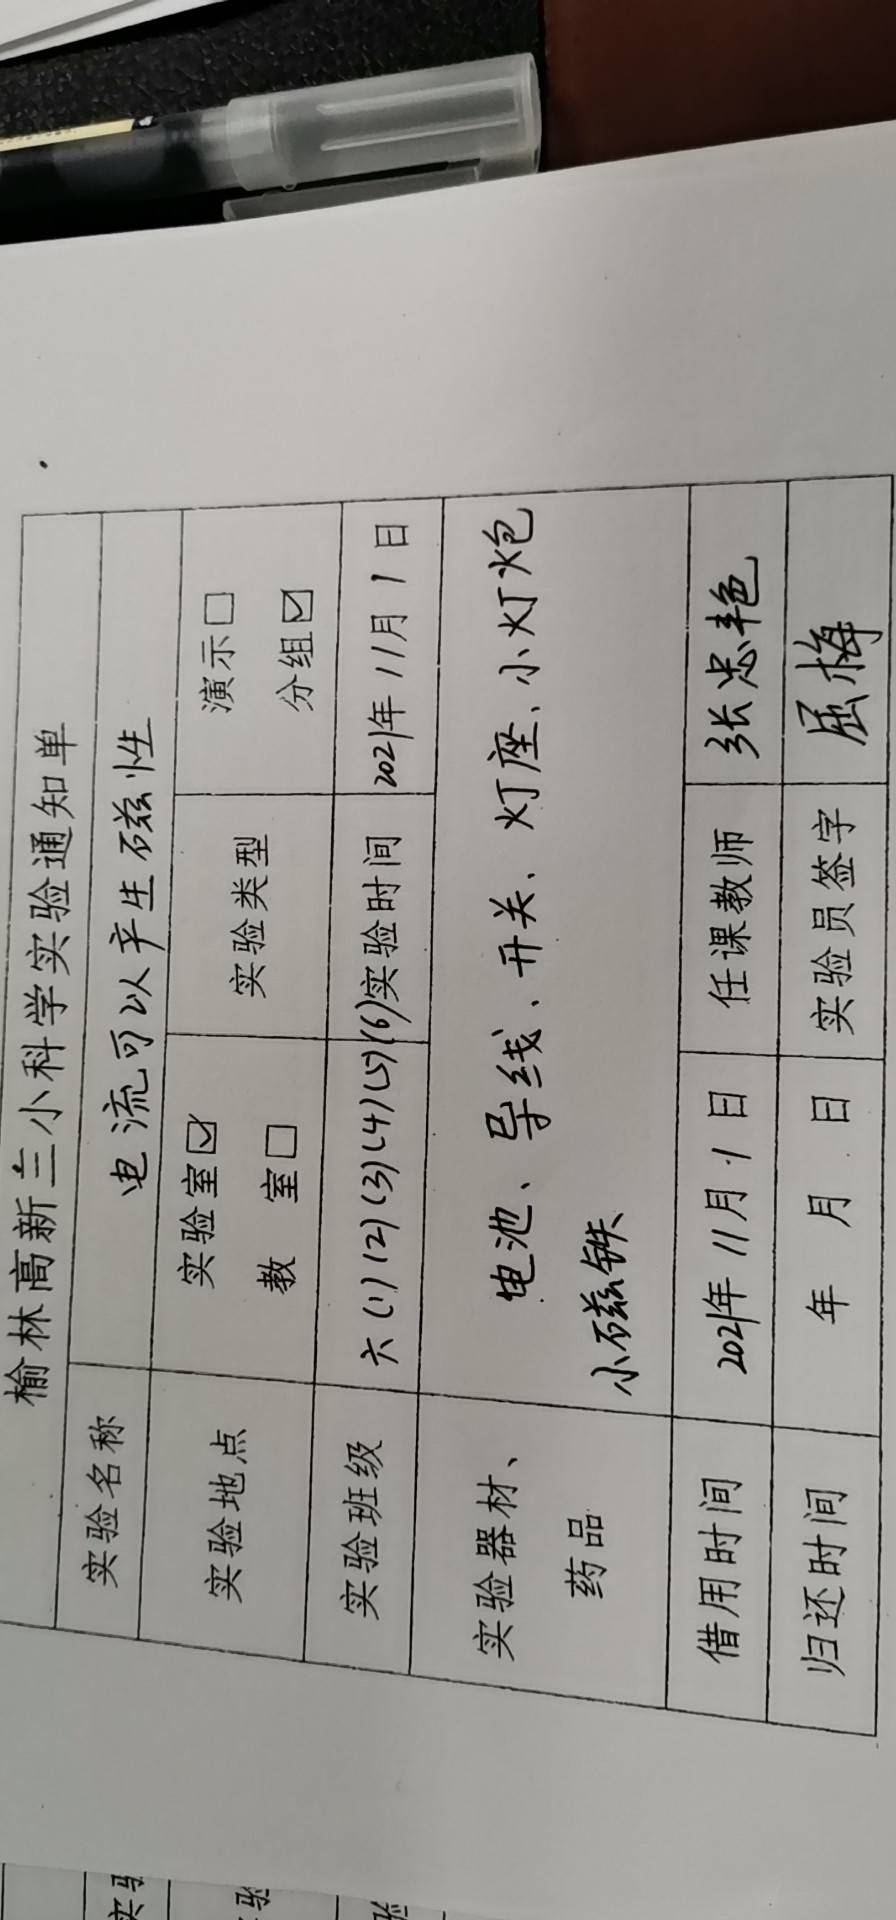 榆林高新三小科学实验通知单
实验名称 电流可以产生磁性
实验地点 实验室☑ 教 室□ 实验类型 演示□ 分组☑
实验班级 六(1)(2)(3)(4)(5)(6) 实验时间 2021年11月1日
实验器材、药品 电池、导线、开关、灯座、小灯炮
小磁铁
借用时间 2021年11月1日 任课教师 张忠艳
归还时间 年 月 日 实验员签字 屈梅